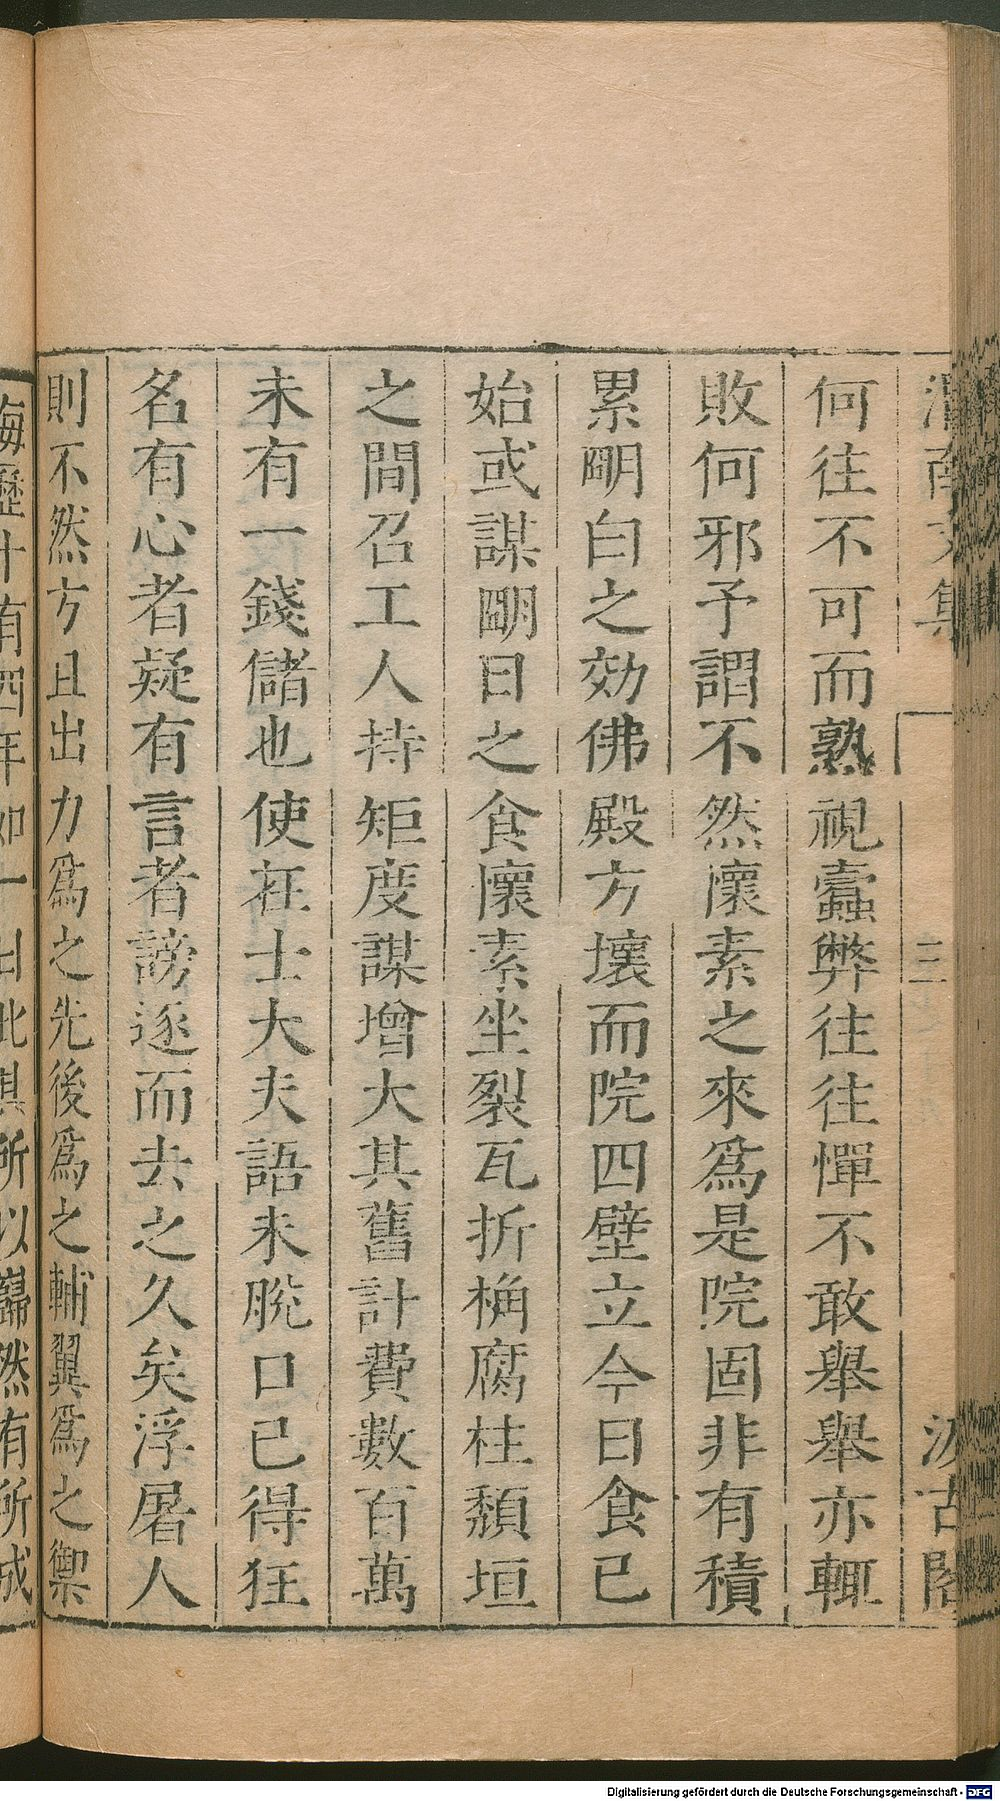 渭南文集
三
汲古閣
何往不可而熟視蠹弊往往憚不敢舉舉亦輒
敗何邪予謂不然懷素之來爲是院固非有積
累明白之効佛殿方壞而院四壁立今日食已
始或謀明日之食懷素坐裂瓦折桷腐柱頹垣
之間召工人持矩度謀增大其舊計費數百萬
未有一錢儲也使在士大夫語未脫口已得狂
名有心者疑有言者謗逐而去之久矣浮屠人
則不然方且出力爲之先後爲之輔翼爲之禦
侮歷十有四年如一日此其所以巋然有所成
Digitalisierung gefördert durch die Deutsche Forschungsgemeinschaft - DFG